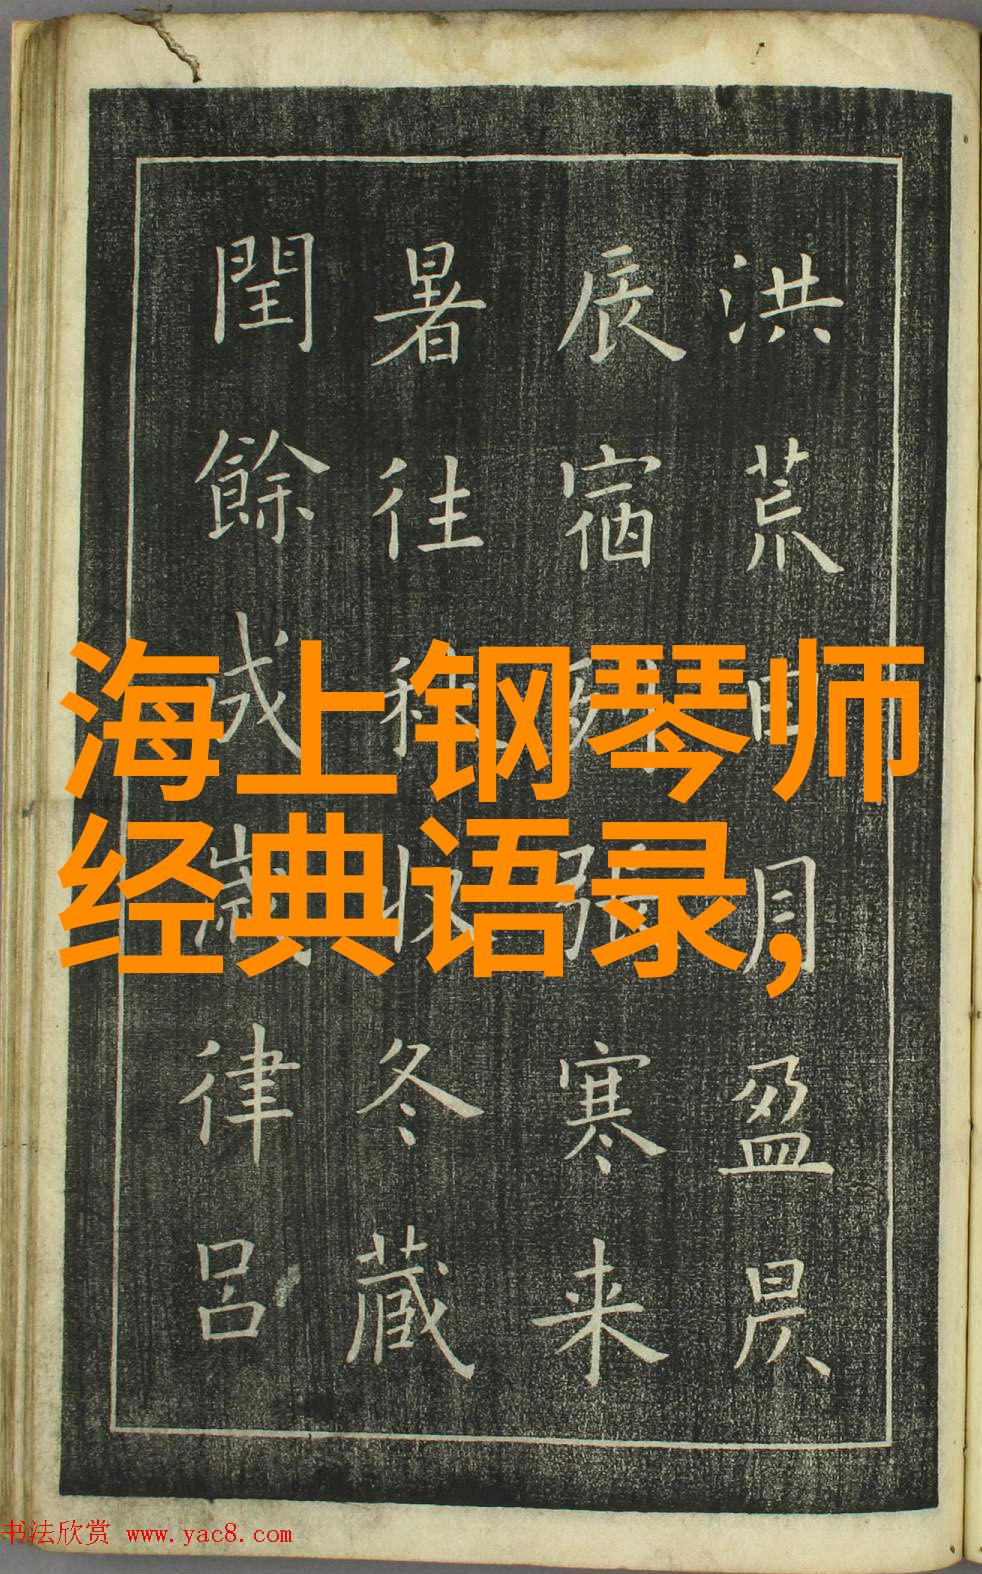 洪荒日月盈昃
辰宿列張寒来
暑往秋收冬藏
閏餘成歲律呂
海上钢琴师
经典语录,
书法欣赏 www.yac8.com